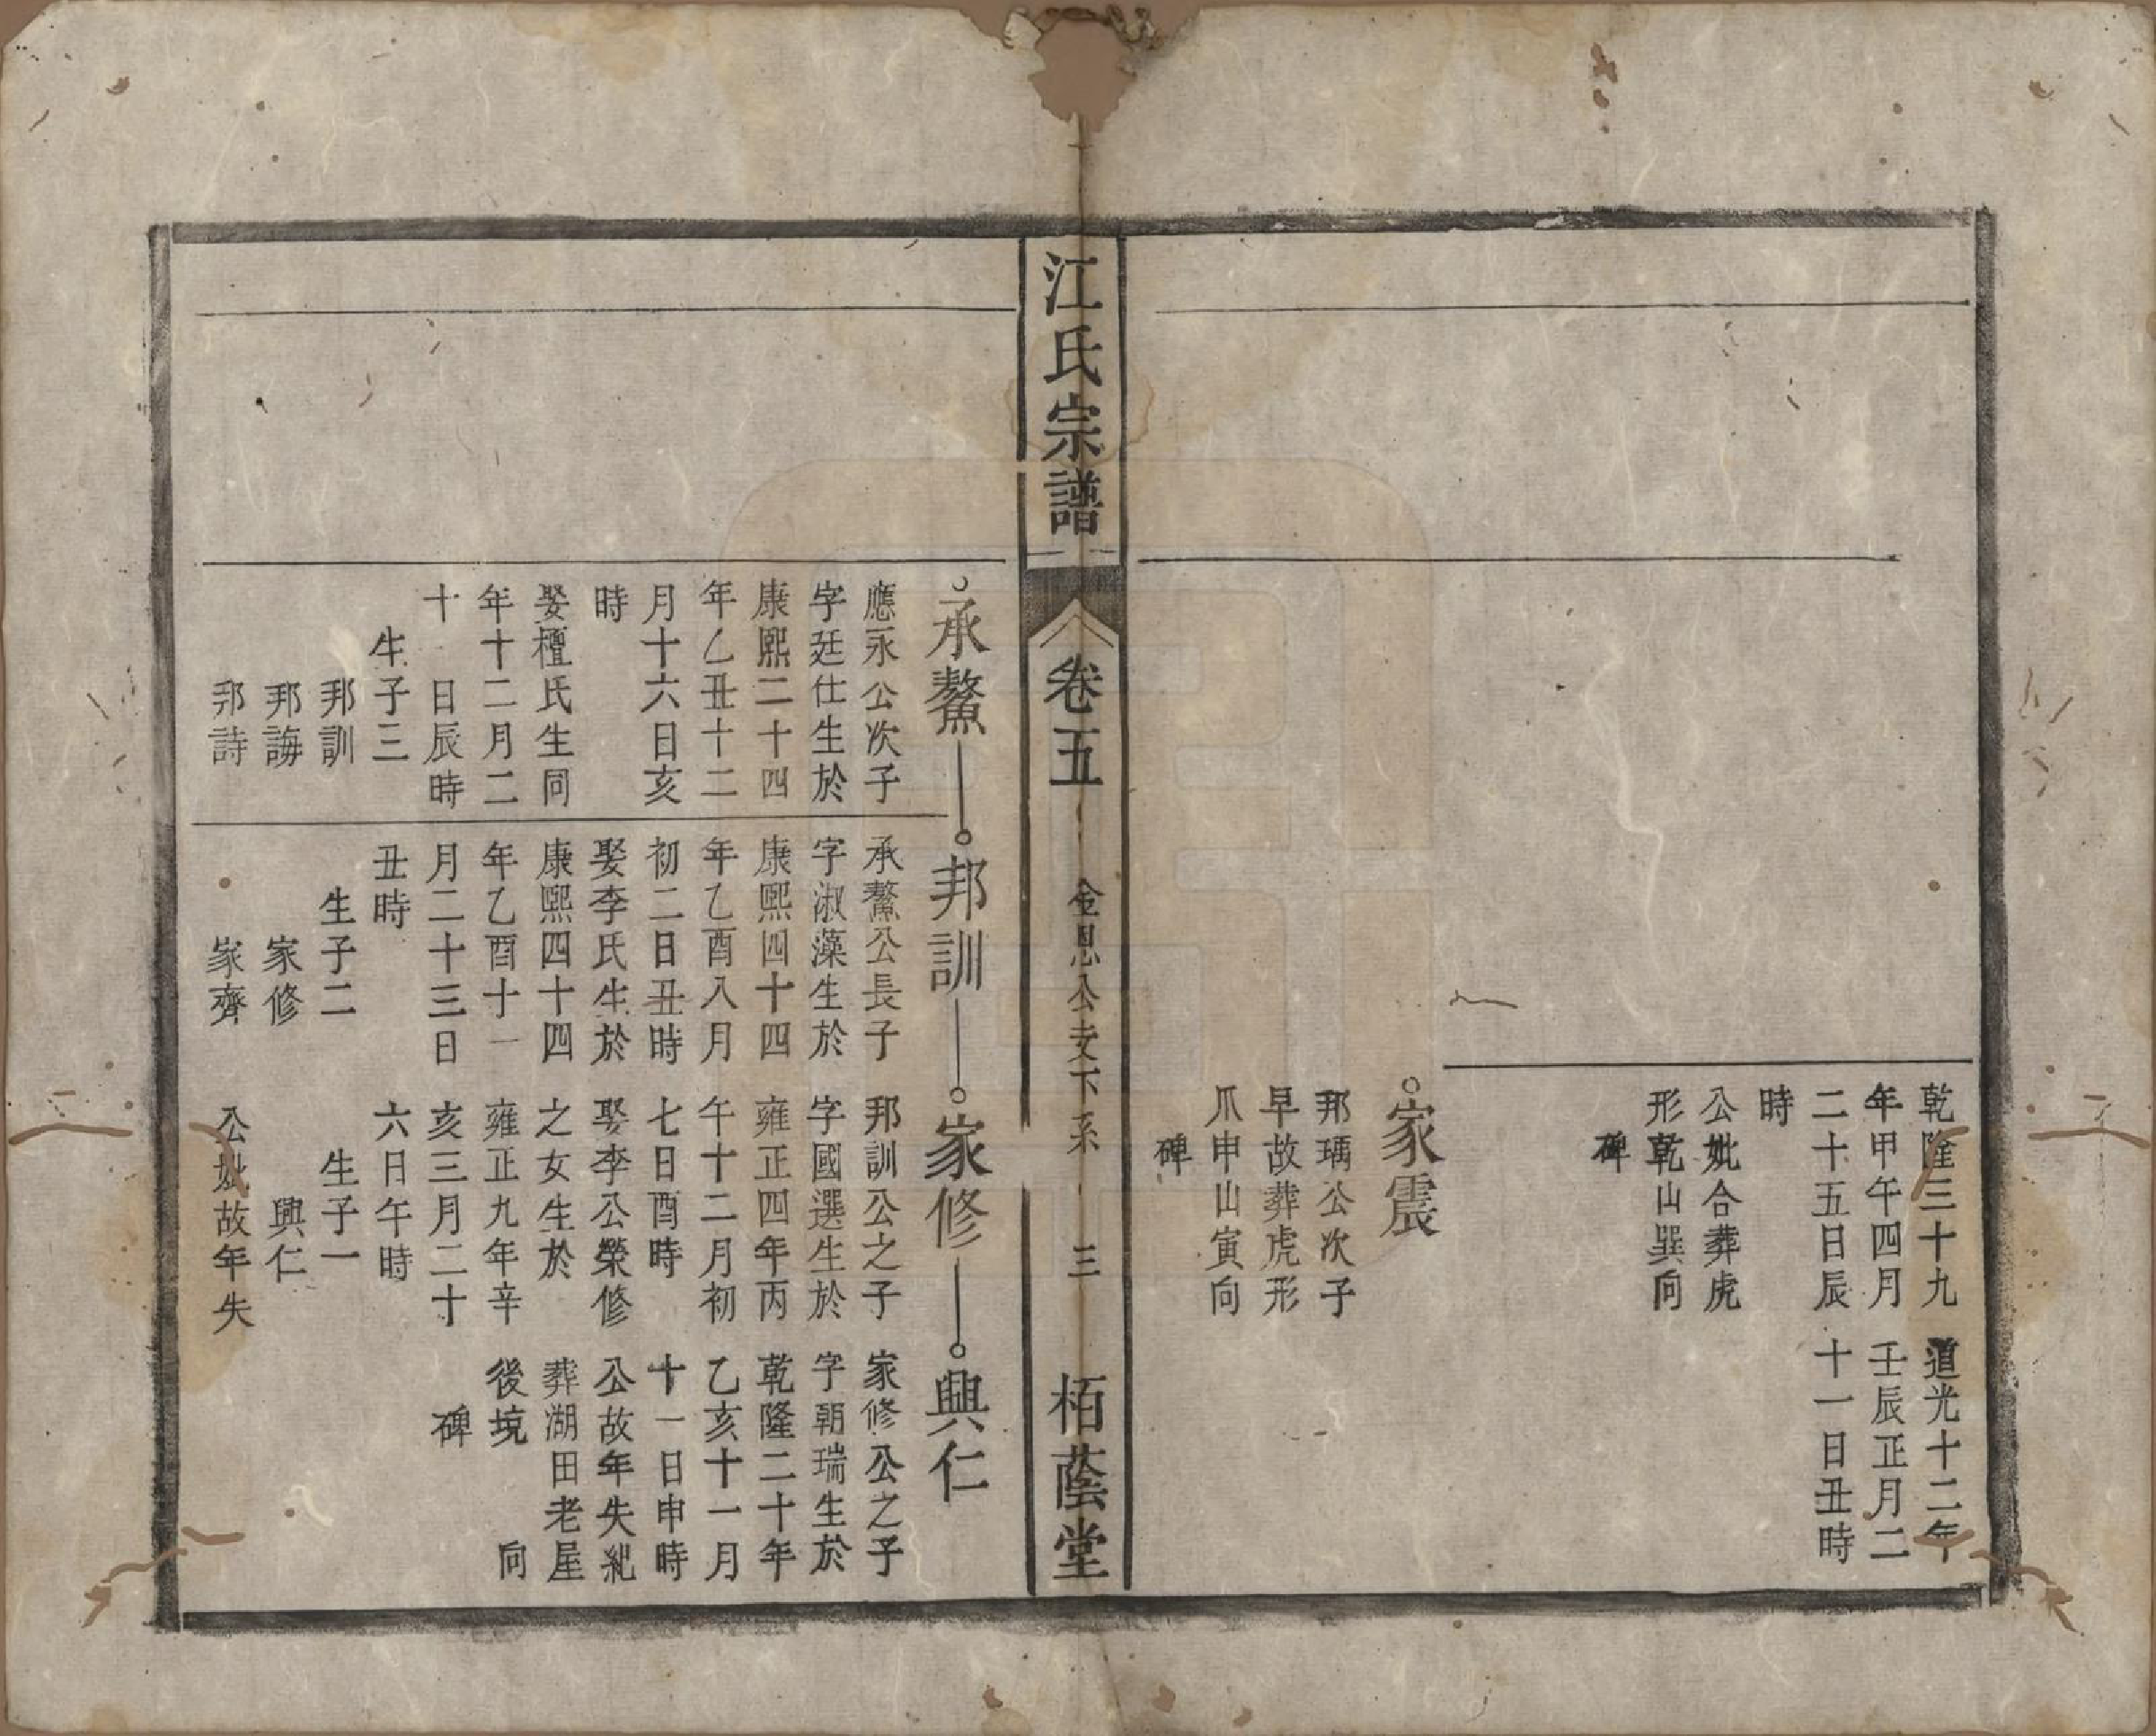 乾隆三十九
年甲午四月
二十五日辰
時
公妣合葬虎
形乾山巽向
碑
道光十二年
壬辰正月二
十一日丑時
家震
邦瑀公次子
早故葬虎形
爪申山寅向
碑
江氏宗譜
卷五
金恩公支下系
三
栢蔭堂
承鰲
應永公次子
字廷仕生於
康熙二十四
年乙丑十二
月十六日亥
時
娶檀氏生同
年十二月二
十 日辰時
生子三
邦訓
邦誨
邦詩
邦訓
承鰲公長子
字淑藻生於
康熙四十四
年乙酉八月
初二日丑時
娶李氏生於
康熙四十四
年乙酉十一
月二十三日
丑時
生子二
家修
家齊
家修
邦訓公之子
字國選生於
雍正四年丙
午十二月初
七日酉時
娶李公榮修
之女生於
雍正九年辛
亥三月二十
六日午時
生子一
興仁
公妣故年失
興仁
家修公之子
字朝瑞生於
乾隆二十年
乙亥十一月
十一日申時
公故年失紀
葬湖田老屋
後境 向
碑